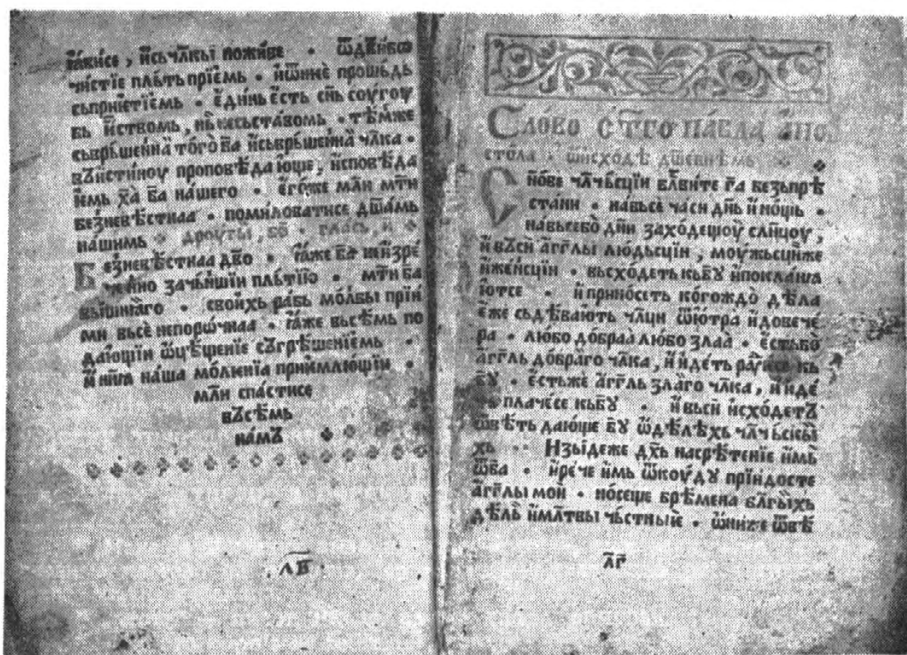 ꙗвисе, и҆съчл҃кы поживе · ѿдв҃ибо
чистїе пльть прїемь · и҆ѡ҆нꙗ прошьдь
съприꙗтїемь · е҆дннь е҆сть сн҃ь соугоу
бь и҆ствомь, нь несъставомь · тѣмже
съврьшенна того ба҃ и҆съврьшенна чл҃ка ·
въистиноу проповѣдающе, и҆споведа
и҆мь ха҃ ба҃ нашего · е҆гоже мл҃и мт҃и
безневѣстнаа · помиловатисе дш҃амь
нашимь · дроугы, бо҃ · глась, и҃ ·
Безневѣстнаа дв҃о · ꙗже ба҃ неизре
ченно заченшии пльтїю · мт҃и ба҃
вышнꙗго · своихь рабь мол҃бы прїи
ми вьсе непорочнаа · ꙗже вьсѣмь по
дающїи ѡ҆цѣщенїе съгрѣшенїемь ·
и҆ нн҃ꙗ наша моленїа приемлющїи ·
мл҃и спастисе
въсѣмь
намъ
л҃в
Слово ст҃го павла а҆по
стола · ѡ҆исходѣ дш҃евнѣмь
Снове чл҃чьсцїи бл҃вите га҃ безьпрѣ
стани · навьсе часи дн҃ь и҆нощь ·
навьсебо дн҃и заходещоу сл҃нцоу,
и҆ вьси а҆гг҃лы людьсцїи, моужьсцїиже
и҆женьсцїи · вьсходеть къбг҃у и҆поклана
ютсе · и҆ приносеть когождо дѣла
ꙗже съдѣвають чл҃ци ѿютра и҆довече
ра · любо добраа любо злаа · е҆стьбо
а҆гг҃ль добраго чл҃ка, и҆ и҆деть радꙋесе къ
бг҃у · е҆стьже а҆гг҃ль злаго чл҃ка, и҆ и҆де
ть плачесе къбг҃у · и҆ вьси и҆сходетъ
ѿвѣть дающе бг҃у ѡ҆дѣлѣхь чл҃чьскы
хь · Изьидеже дх҃ь насрѣтенїе и҆мь
ѿба · и҆рече и҆мь ѿкоуду прїидосте
а҆гг҃лы мои · носеще брѣмена бл҃гыхь
дѣль и҆мл҃твы чьстныѥ · ѡ҆ниже ѿвѣ
л҃г